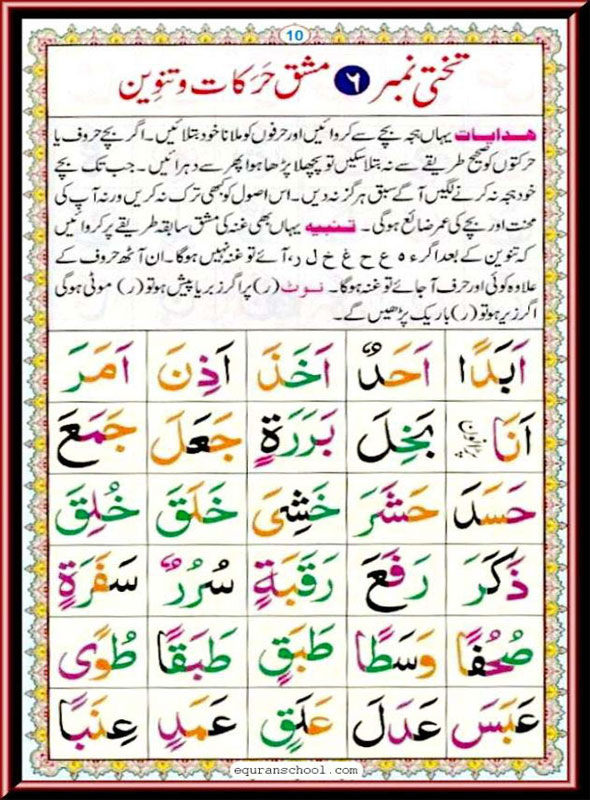 10
تختی نمبر ۶ مشق حرکات و تنوین
ھدایات یہاں ہجہ بچے سے کروائیں اور حرفوں کو ملانا خود بتلائیں۔ اگر بچے حروف یا
حرکتوں کو صحیح طریقے سے نہ بتلا سکیں تو پچھلا پڑھا ہوا پھر سے دہرائیں۔ جب تک بچے
خود ہجہ نہ کرنے لگیں آگے سبق ہرگز نہ دیں۔ اس اصول کو کبھی ترک نہ کریں ورنہ آپ کی
محنت اور بچے کی عمر ضائع ہوگی۔ تنبیہ یہاں بھی غنہ کی مشق سابقہ طریقے پر کروائیں
کہ تنوین کے بعد اگر ء ہ ع ح غ خ ل ر، آئے تو غنہ نہیں ہوگا۔ ان آٹھ حروف کے
علاوہ کوئی اور حرف آجائے تو غنہ ہوگا۔ نوٹ (ر) پر اگر زبر یا پیش ہو تو (ر) موٹی ہوگی
اگر زیر ہو تو (ر) باریک پڑھیں گے۔
اَبَدًا اَحَدٌ اَخَذَ اَذِنَ اَمَرَ
اَنَا بَخِلَ بَرَرَةٍ جَعَلَ جَمَعَ
حَسَدَ حَشَرَ خَشِیَ خَلَقَ خُلِقَ
ذَکَرَ رَفَعَ رَقَبَةٍ سُرُرٌ سَفَرَةٍ
صُحُفًا وَسَطًا طَبَقٍ طَبَقًا طُوًی
عَبَسَ عَدَلَ عَلَقٍ عَمَدٍ عِنَبًا
equranschool.com